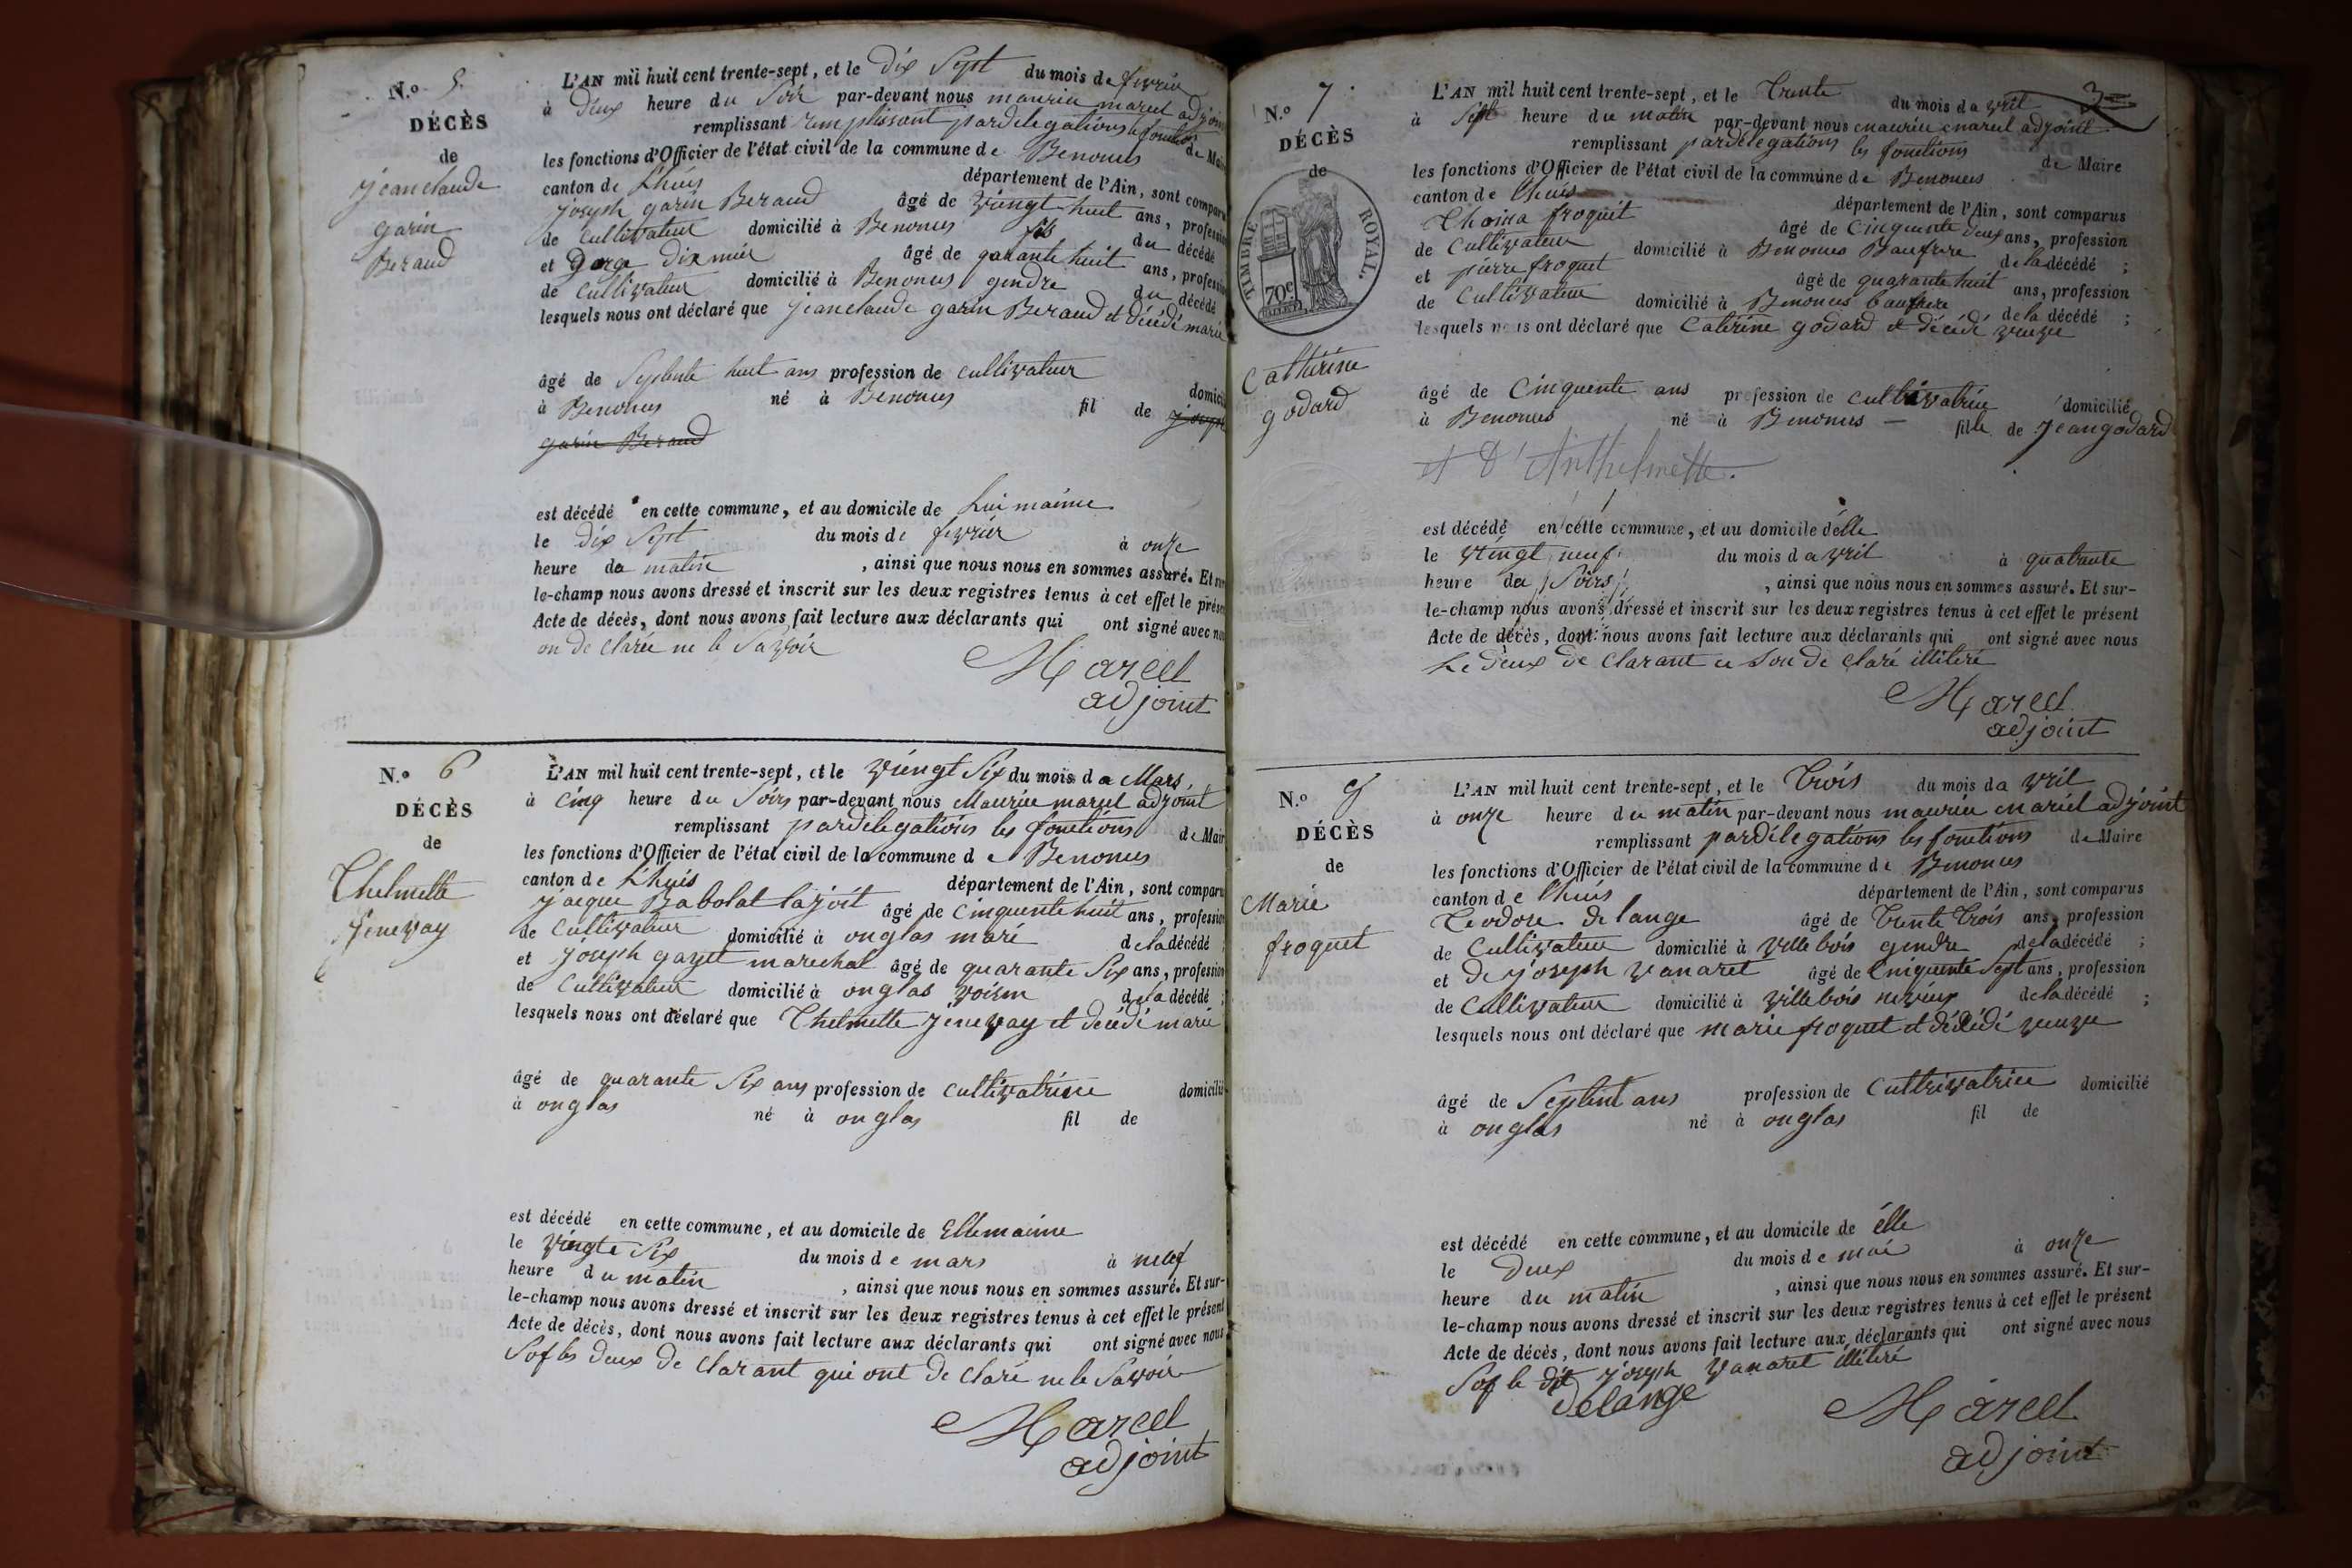 N.o 5.
DÉCÈS
de
jean claude
garin
Beraud
L'AN mil huit cent trente-sept, et le dix Sept du mois de fevrier
à deux heure du Soir par-devant nous maurice marcel adjoin
remplissant remplissant pardelegations les fonctions de Mai
les fonctions d'Officier de l'état civil de la commune de Benonces
canton de Lhuis département de l'Ain, sont comparu
joseph garin Beraud âgé de vingt huit ans, profession
de cultivateur domicilié à Benonces fils du décédé
et George dix mier âgé de quarante huit ans, profession
de cultivateur domicilié à Benonces gendre du décédé
lesquels nous ont déclaré que jean claude garin Beraud et décédé marié
âgé de Septente huit ans profession de cultivateur domicil
à Benonces né à Benonces fil de joseph
garin Beraud
est décédé en cette commune, et au domicile de Lui maime
le dix Sept du mois de fevrier à onze
heure da matin , ainsi que nous nous en sommes assuré. Et sur
le-champ nous avons dressé et inscrit sur les deux registres tenus à cet effet le présen
Acte de décès, dont nous avons fait lecture aux déclarants qui ont signé avec nou
on de clarée ne le Savoir
Marcel
adjoint
N.o 6
DÉCÈS
de
Thelmette
jenevay
L'AN mil huit cent trente-sept, et le vingt Six du mois da Mars
à Cinq heure du Soirs par-devant nous Maurice marcel adjoint
remplissant pardelegations les fonctions de Mair
les fonctions d'Officier de l'état civil de la commune de Benonces
canton de Lhuis département de l'Ain, sont comparu
jacque Babolat lajoit âgé de Cinquente huit ans, profession
de Cultivateur domicilié à onglas maré de la décédé ;
et joseph gayet marechal âgé de quarante Six ans, profession
de Cultivateur domicilié à onglas voisin de la décédé ;
lesquels nous ont déclaré que Thelmette jenevay et decédé marié
âgé de quarante Six ans profession de cultivatrice domicilié
à onglas né à onglas fil de
est décédé en cette commune, et au domicile de Elle maime
le Vingte Six du mois de mars à neuf
heure du matin , ainsi que nous nous en sommes assuré. Et sur-
le-champ nous avons dressé et inscrit sur les deux registres tenus à cet effet le présent
Acte de décès, dont nous avons fait lecture aux déclarants qui ont signé avec nous
Sof les deux de clarant qui ont de claré ne le Savoir
Marcel
adjoint
N.o 7.
DÉCÈS
de
TIMBRE ROYAL.
70c
Cathérine
godard
L'AN mil huit cent trente-sept, et le Trente du mois da vril
à Sept heure du matin par-devant nous maurice marcel adjoint
remplissant pardélegations les fonctions de Maire
les fonctions d'Officier de l'état civil de la commune de Benonces
canton de Lhuis département de l'Ain, sont comparus
Thoma froquet âgé de Cinquente deux ans, profession
de Cultivateur domicilié à Benonces Baufrere de la décédé ;
et pierre froquet âgé de quarante huit ans, profession
de Cultivateur domicilié à Benonces baufrere de la décédé ;
lesquels nous ont déclaré que Catérine godard et décédé veuve
âgé de Cinquente ans profession de cultivatrice domicilié
à Benonces né à Benonces — fille de jean godard
et d'Anthelmette.
est décédé en cette commune, et au domicile délle
le vingt neuf du mois da vril à quatreute
heure da Soirs , ainsi que nous nous en sommes assuré. Et sur-
le-champ nous avons dressé et inscrit sur les deux registres tenus à cet effet le présent
Acte de décès, dont nous avons fait lecture aux déclarants qui ont signé avec nous
Le deux de clarant ce son de claré illiteré
Marcel
adjoint
N.o
DÉCÈS
de
Marie
froquet
L'AN mil huit cent trente-sept, et le Trois du mois da vril
à onze heure du matin par-devant nous maurice marcel adjoint
remplissant pardélegations les fonctions de Maire
les fonctions d'Officier de l'état civil de la commune de Benonces
canton de lhuis département de l'Ain, sont comparus
Teodore de lange âgé de Trente Trois ans, profession
de Cultivateur domicilié à velle bois gendre de la décédé ;
et de joseph vanaret âgé de Cinquente Sept ans, profession
de Cultivateur domicilié à villebois neveux de la décédé ;
lesquels nous ont déclaré que marie froquet et décédé veuve
âgé de Septint ans profession de Cultrivatrice domicilié
à onglas né à onglas fil de
est décédé en cette commune, et au domicile de élle
le deux du mois de mai à onze
heure du matin , ainsi que nous nous en sommes assuré. Et sur-
le-champ nous avons dressé et inscrit sur les deux registres tenus à cet effet le présent
Acte de décès, dont nous avons fait lecture aux déclarants qui ont signé avec nous
Sof le dit joseph vanaret illiteré
Delange
Marcel
adjoint